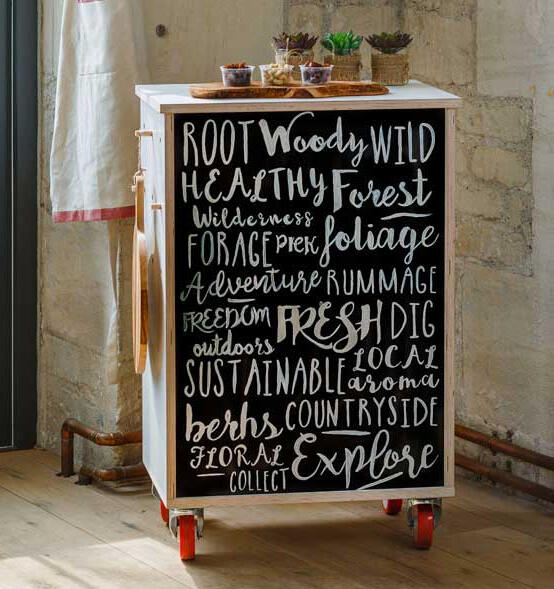 ROOT Woody WILD
HEALTHY Forest
Wilderness
FORAGE PICK foliage
Adventure RUMMAGE
FREEDOM FRESH DIG
outdoors LOCAL
SUSTAINABLE aroma
berhs COUNTRYSIDE
FLORAL Explore
COLLECT